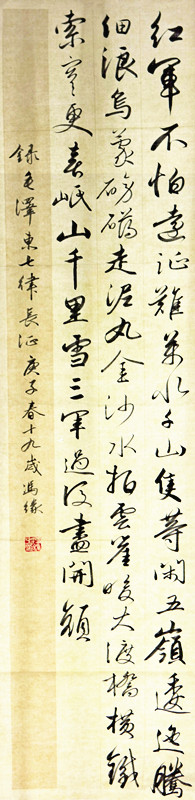 紅軍不怕遠征難萬水千山隻等閑五嶺逶迤騰
細浪烏蒙磅礴走泥丸金沙水拍雲崖暖大渡橋橫鐵
索寒更喜岷山千里雪三軍過後盡開顔
録毛澤東七律長征庚子春十九歲馮緣